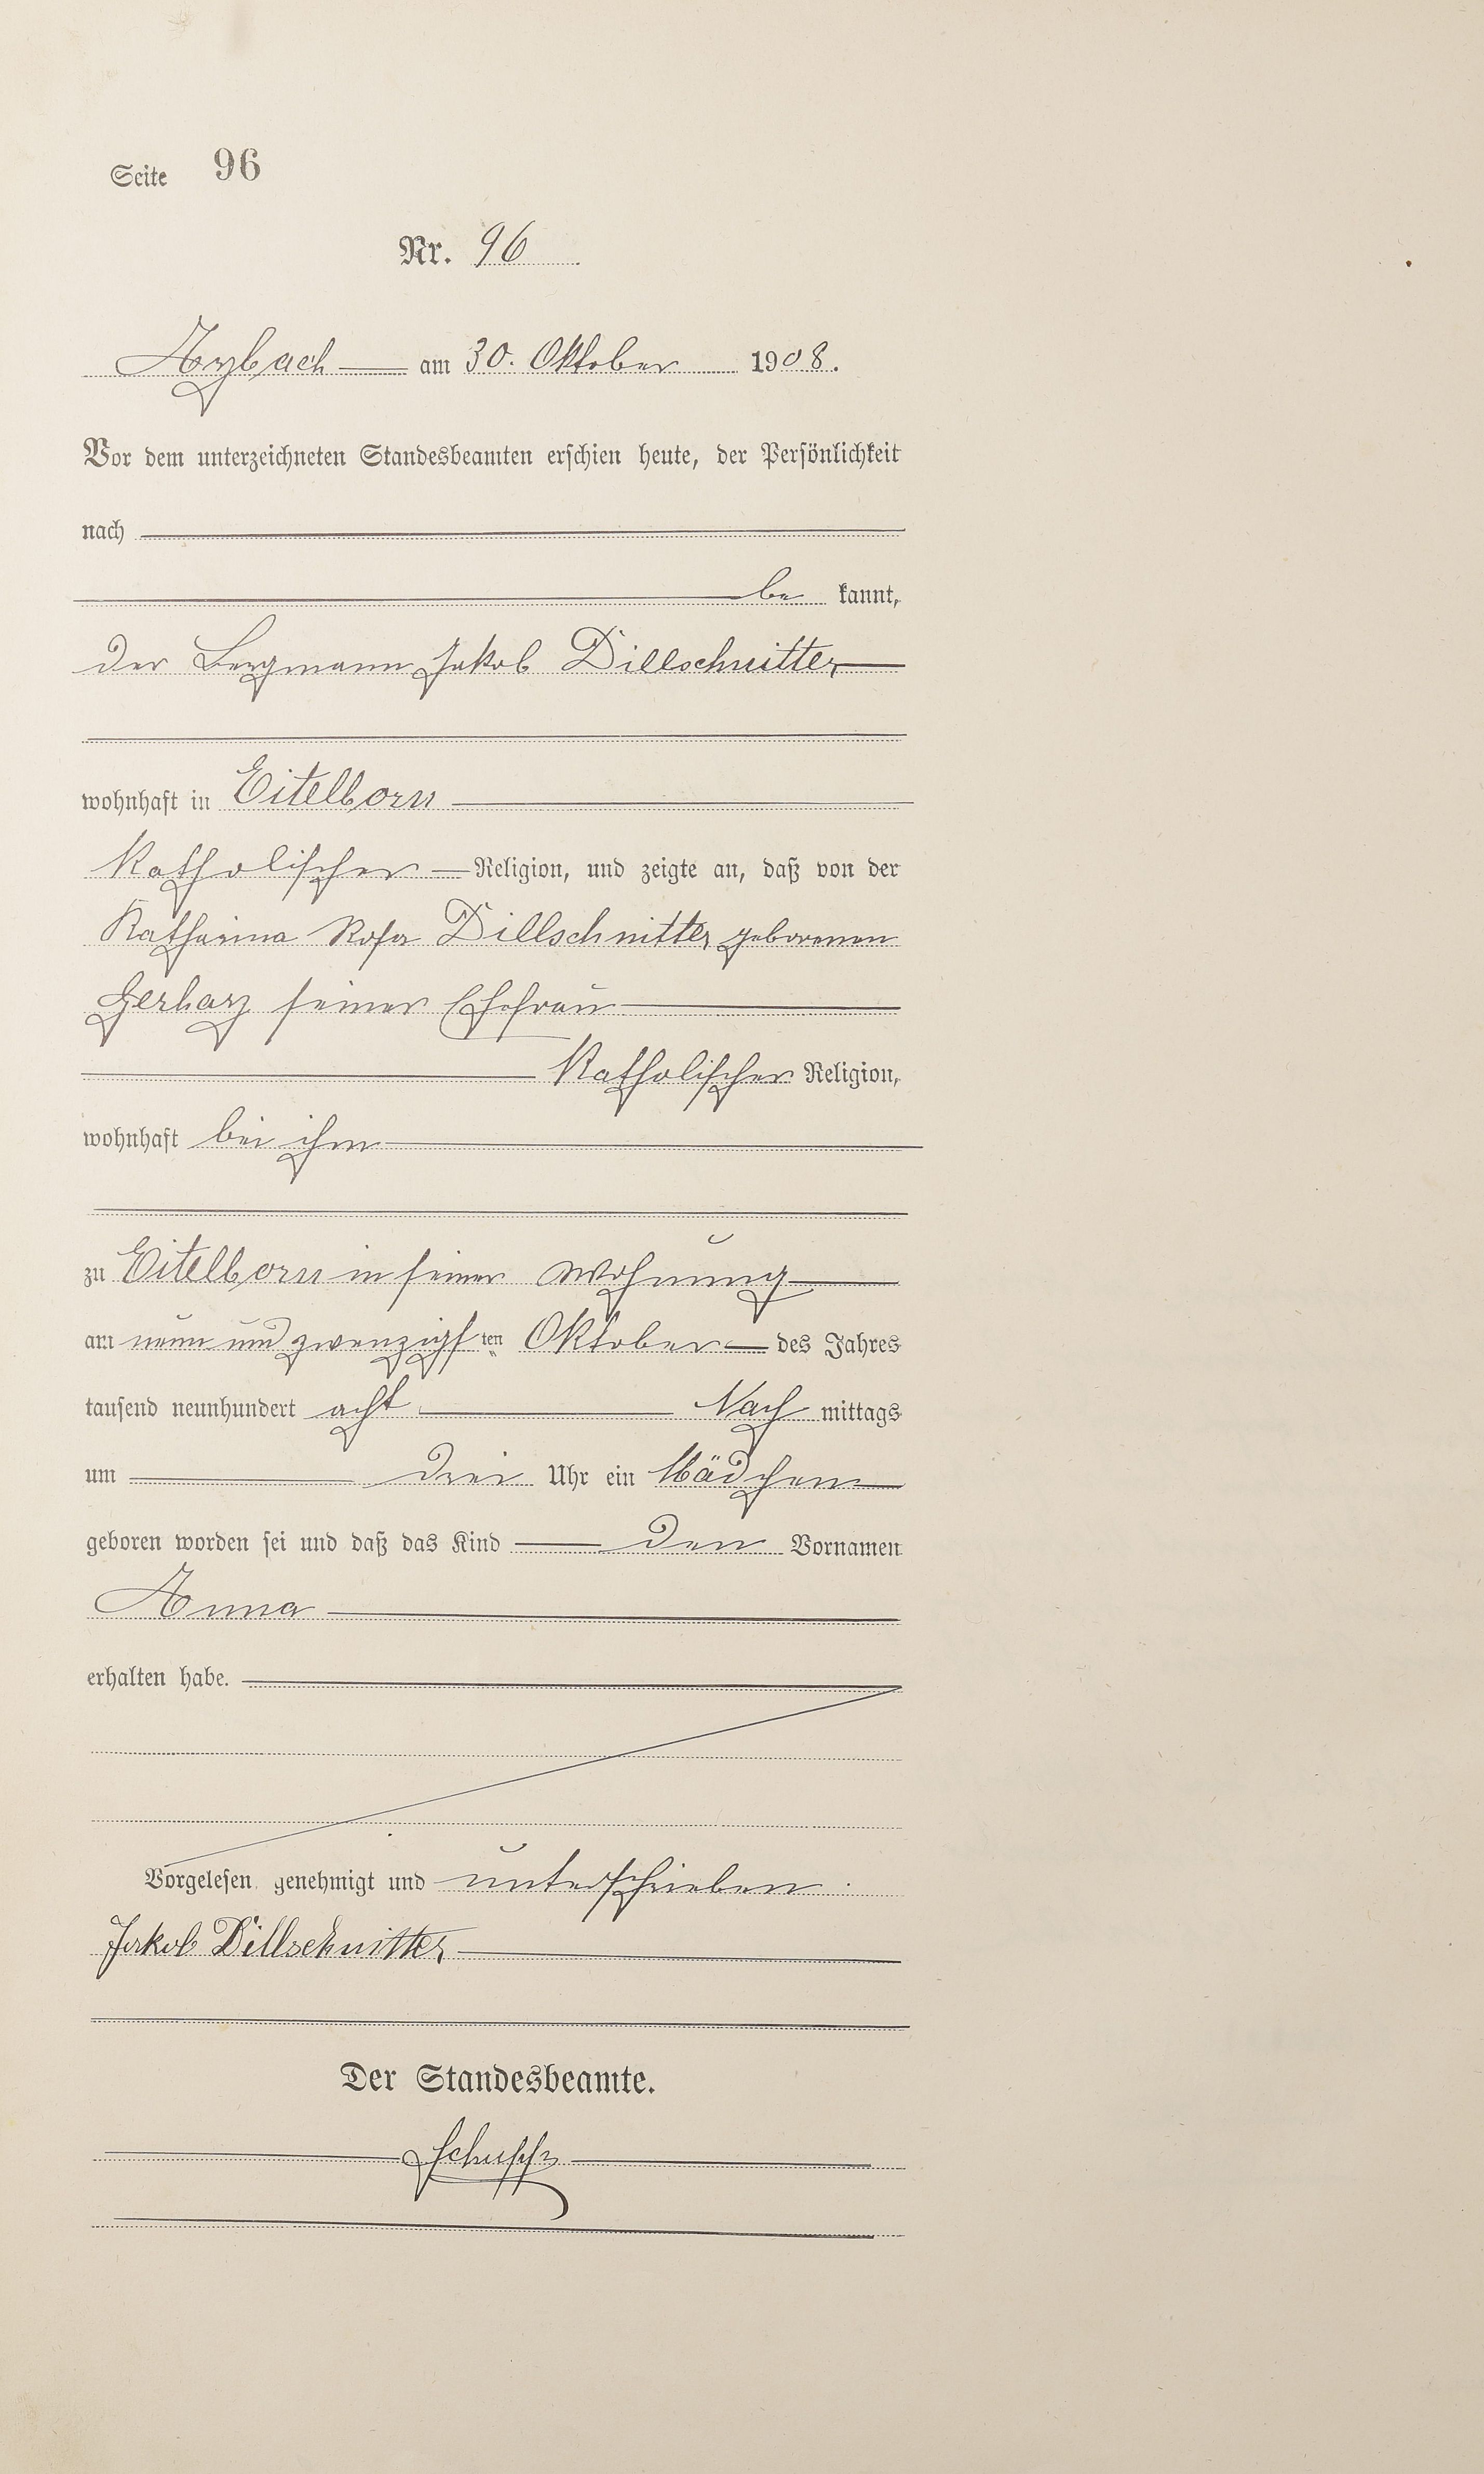 Seite 96
Nr. 96
Arzbach am 30. Oktober 1908.
Vor dem unterzeichneten Standesbeamten erschien heute, der Persönlichkeit
nach
be kannt,
der Bergmann Jakob Dillschnitter
wohnhaft in Eitelborn
Katholischer Religion, und zeigte an, daß von der
Katharina Rosa Dillschnitter geborenen
Gerharz seiner Ehefrau
Katholischer Religion,
wohnhaft bei ihm
zu Eitelborn in seiner Wohnung
am neun und zwanzigsten Oktober des Jahres
tausend neunhundert acht Nach mittags
um drei Uhr ein Mädchen
geboren worden sei und daß das Kind den Vornamen
Anna
erhalten habe.
Vorgelesen, genehmigt und unterschrieben.
Jakob Dillschnitter
Der Standesbeamte.